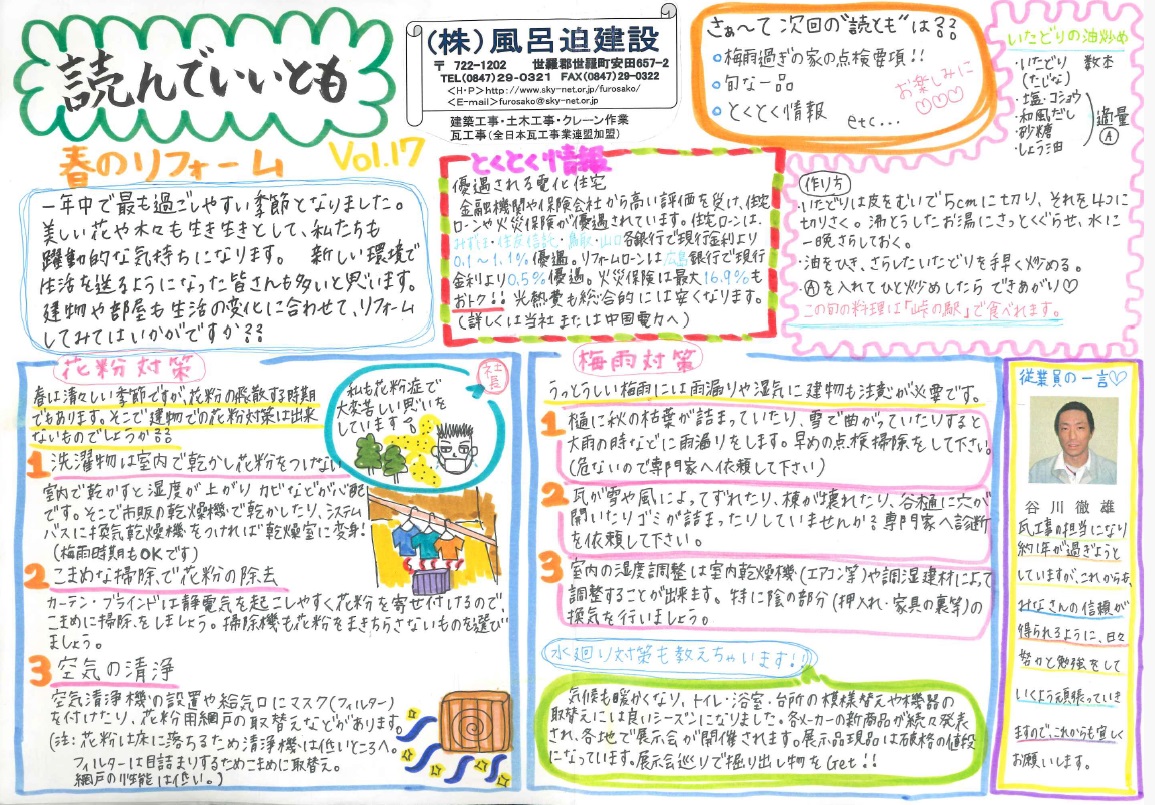 読んでいいとも
(株)風呂迫建設
〒 722-1202 世羅郡世羅町安田657-2
TEL(0847)29-0321 FAX(0847)29-0322
<H・P>http://www.sky-net.or.jp/furosako/
<E-mail>furosako@sky-net.or.jp
建築工事・土木工事・クレーン作業
瓦工事(全日本瓦工事業連盟加盟)
さぁ〜て 次回の"読とも"は??
・梅雨過ぎの家の点検要項!!
・旬な一品
・とくとく情報 etc...
お楽しみに
♡♡♡
いたどりの油炒め
・いたどり 数本
(たじな)
・塩・コショウ
・和風だし
・砂糖
・しょう油
適量
Ⓐ
作り方
・いたどりは皮をむいで5cmに切り、それを4つに
切りさく。沸とうしたお湯にさっとくぐらせ、水に
一晩さらしておく。
・油をひき、さらしたいたどりを手早く炒める。
・Ⓐを入れてひと炒めしたら できあがり♡
この旬の料理は「峠の駅」で食べれます。
春のリフォーム
Vol.17
一年中で最も過ごしやすい季節となりました。
美しい花や木々も生き生きとして、私たちも
躍動的な気持ちになります。 新しい環境で
生活を送るようになった皆さんも多いと思います。
建物や部屋も生活の変化に合わせて、リフォーム
してみてはいかがですか??
とくとく情報
優遇される電化住宅
金融機関や保険会社から高い評価を受け、住宅
ローンや火災保険が優遇されています。住宅ローンは、
みずほ・住友信託・鳥取・山口各銀行で現行金利より
0.1〜1.1%優遇。リフォームローンは広島銀行で現行
金利より0.5%優遇。火災保険は最大16.9%も
おトク!! 光熱費も総合的には安くなります。
(詳しくは当社または中国電力へ)
花粉対策
春は清々しい季節ですが、花粉の飛散する時期
でもあります。そこで建物での花粉対策は出来
ないものでしょうか??
社長
私も花粉症で
大変苦しい思いを
しています
1 洗濯物は室内で乾かし花粉をつけない
室内で乾かすと湿度が上がりカビなどが心配
です。そこで市販の乾燥機で乾かしたり、システム
バスに換気乾燥機をつければ乾燥室に変身!
(梅雨時期もOKです)
2 こまめな掃除で花粉の除去
カーテン・ブラインドは静電気を起こしやすく花粉を寄せ付けるので、
こまめに掃除をしましょう。掃除機も花粉をまきちらさないものを選び
ましょう。
3 空気の清浄
空気清浄機の設置や給気口にマスク(フィルター)
を付けたり、花粉用網戸の取替えなどがあります。
(注:花粉は床に落ちるため清浄機は低いところへ。
フィルターは目詰まりするためこまめに取替え。
網戸の性能は低い。)
梅雨対策
うっとうしい梅雨には雨漏りや湿気に建物も注意が必要です。
1 樋に秋の枯葉が詰まっていたり、雪で曲がっていたりすると
大雨の時などに雨漏りをします。早めの点検掃除をして下さい。
(危ないので専門家へ依頼して下さい)
2 瓦が雪や風によってずれたり、棟が壊れたり、谷樋に穴が
開いたりゴミが詰まったりしていませんか?専門家へ診断
を依頼して下さい。
3 室内の湿度調整は室内乾燥機(エアコン等)や調湿建材によって
調整することが出来ます。特に陰の部分(押入れ・家具の裏等)の
換気を行いましょう。
水廻り対策も教えちゃいます!!
気候も暖かくなり、トイレ・浴室・台所の模様替えや機器の
取替えには良いシーズンになりました。各メーカーの新商品が続々発表
され、各地で展示会が開催されます。展示品現品は破格の値段
になっています。展示会巡りで掘り出し物をGet!!
従業員の一言♡
谷川徹雄
瓦工事の担当になり
約1年が過ぎようと
していますが、これからも、
みなさんの信頼が
得られるように、日々
努力と勉強をして
いくよう頑張っていき
ますので、これからも宜しく
お願いします。